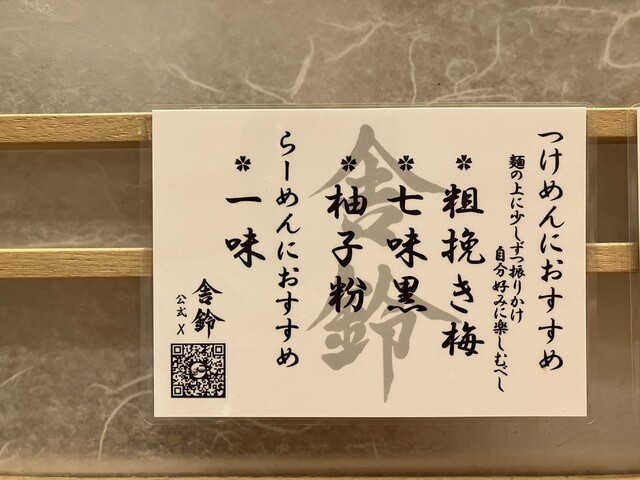 つけめんにおすすめ
麺の上に少しずつ振りかけ
自分好みに楽しむべし
粗挽き梅
七味黒
柚子粉
らーめんにおすすめ
一味
舎鈴
公式 X
舎鈴